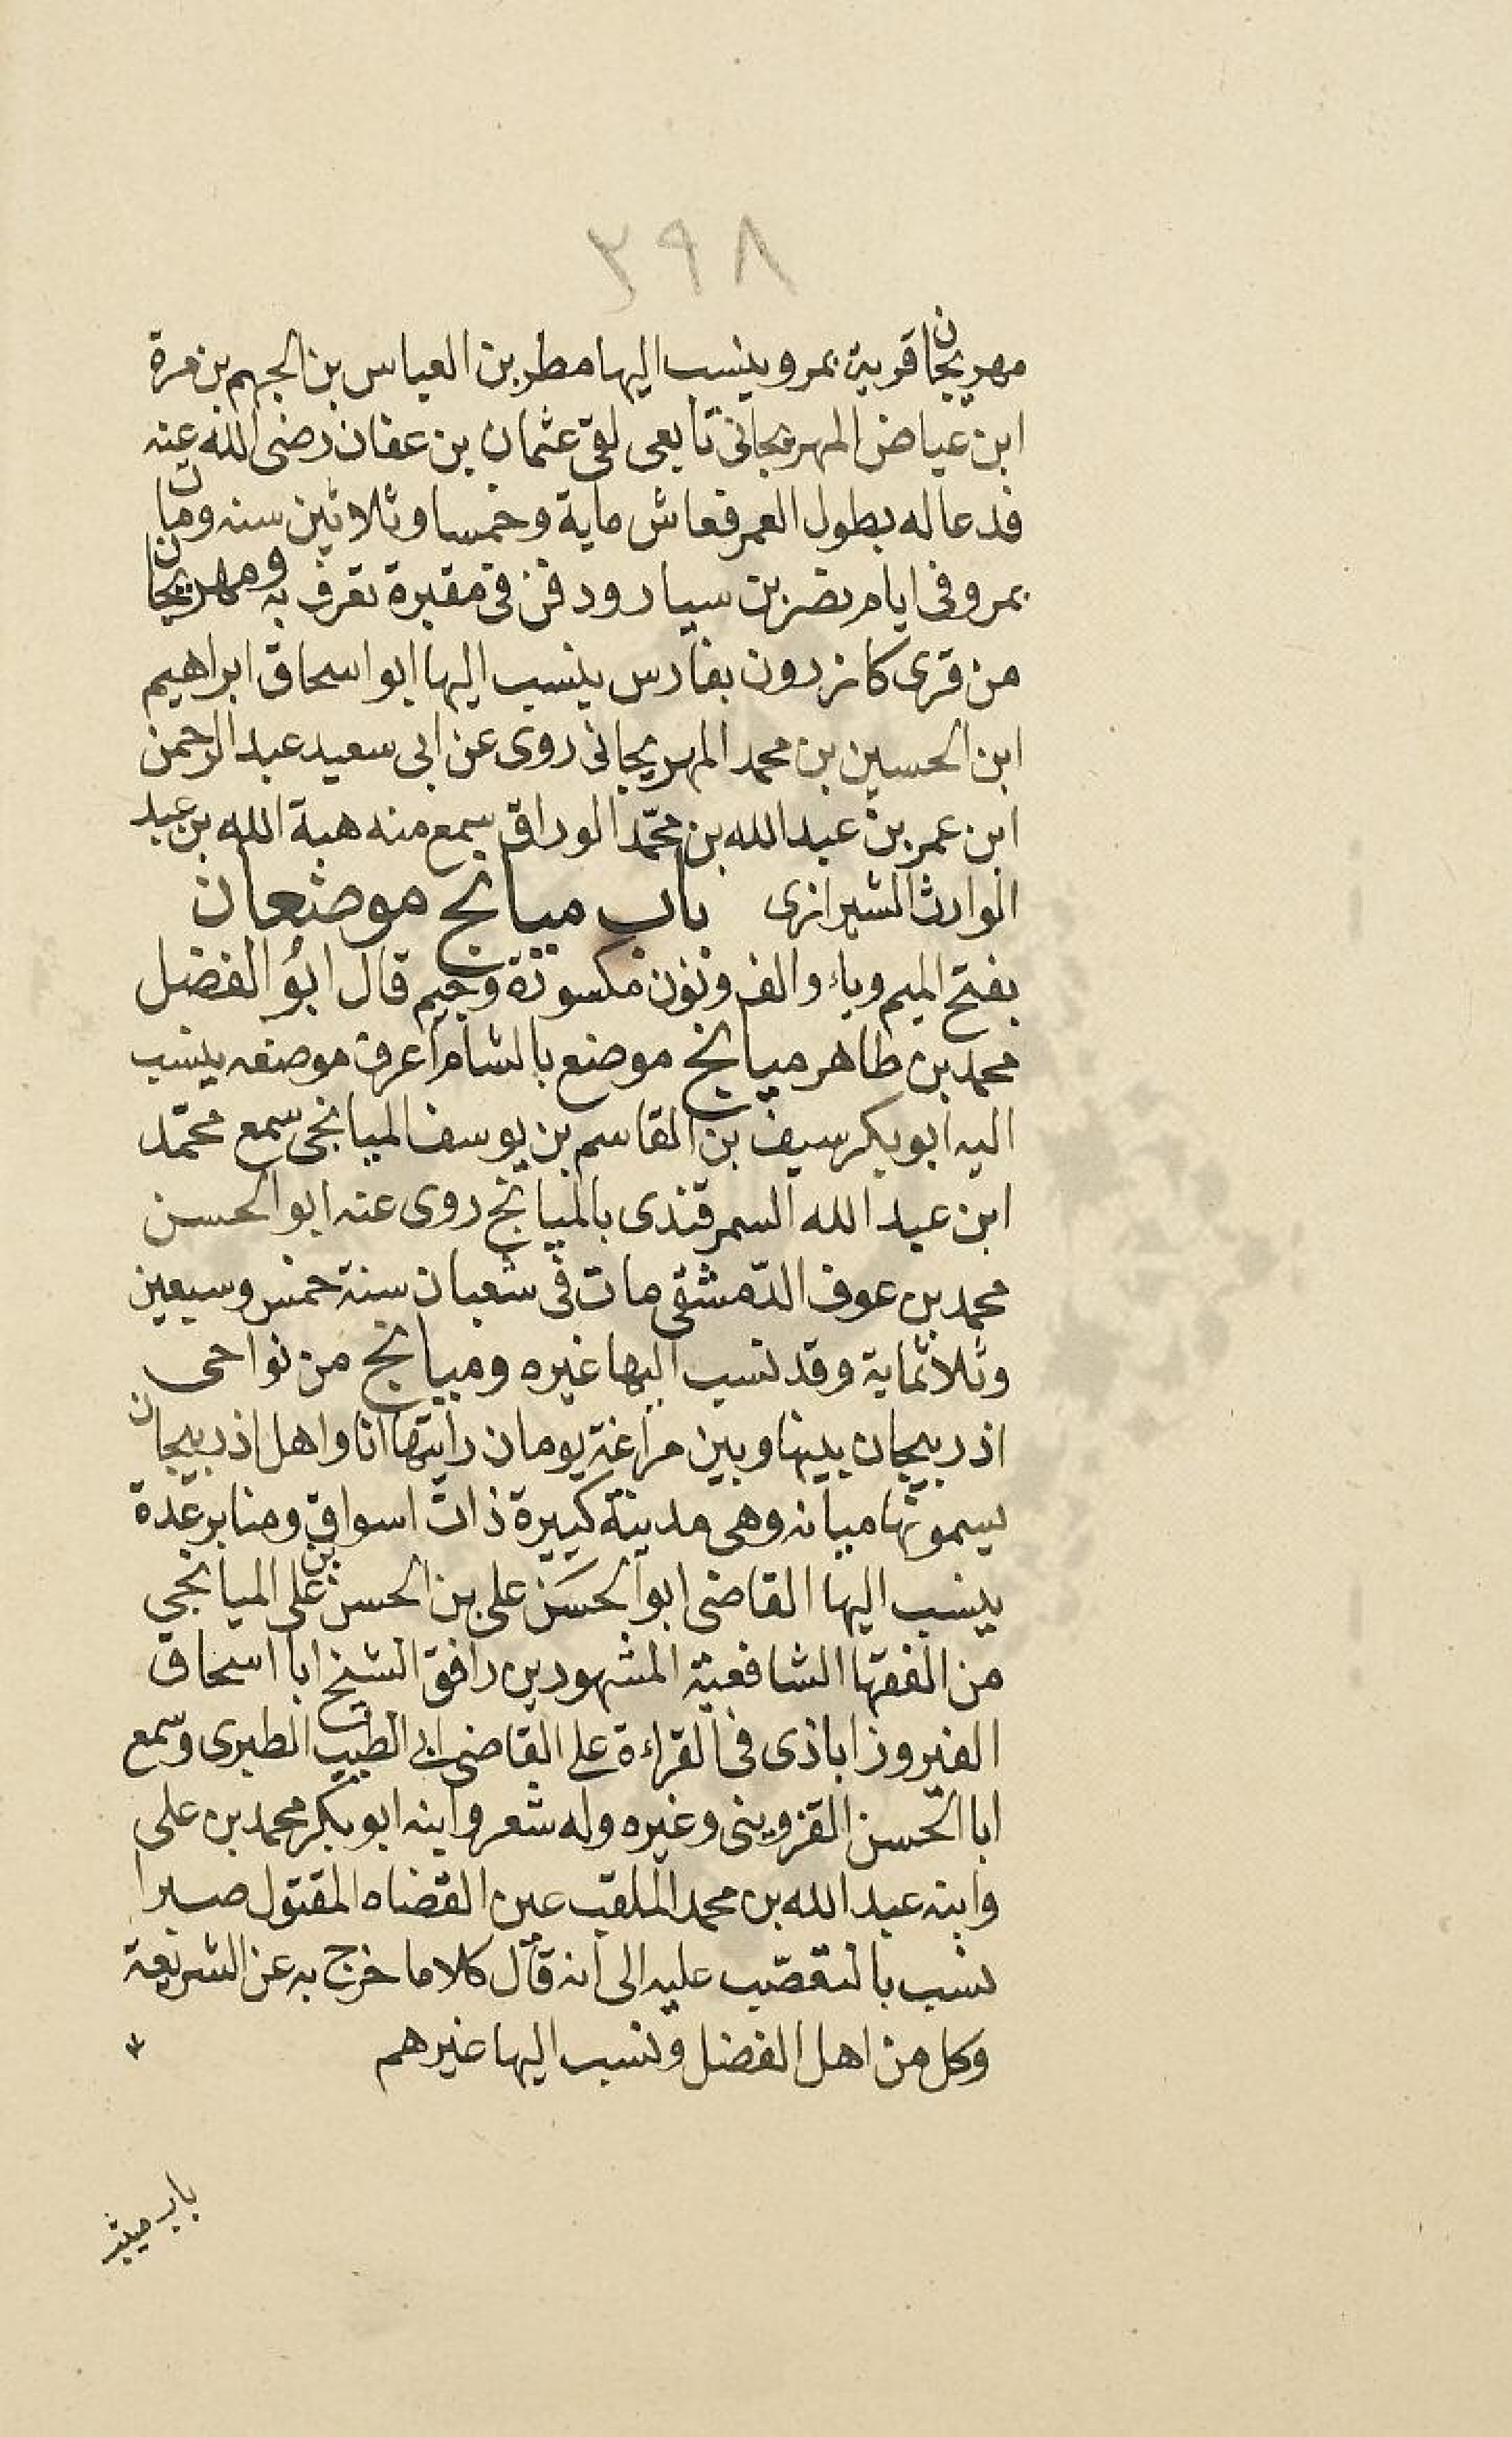 ٣٩٨
مهريجان قرية بمرو ينسب اليها مطر بن العباس بن الجهم بن مرة
ابن عياض المهريجانى تابعى لقى عثمان بن عفان رضى الله عنه
فدعا له بطول العمر فعاش ماية وخمسا وثلاثين سنه ومات
بمرو فى ايام نصر بن سيار ودفن فى مقبرة تعرف به ومهريجان
من قرى كازرون بفارس ينسب اليها ابو اسحاق ابراهيم
ابن الحسين بن محمد المهريجانى روى عن ابى سعيد عبد الرحمن
ابن عمر بن عبد الله بن محمّد الوراق سمع منه هبة الله بن عبد
الوارث الشيرازى باب ميانج موضعان
بفتح الميم وياء والف ونون مكسورة وجيم قال ابو الفضل
محمد بن طاهر ميانج موضع بالشام اعرف موضعه ينسب
اليه ابو بكر سيف بن القاسم بن يوسف الميانجى سمع محمّد
ابن عبد الله السمرقندى بالميانج روى عنه ابو الحسن
محمد بن عوف الدّمشقى مات فى شعبان سنة خمس وسبعين
وثلاثماية وقد نسب اليها غيره وميانج من نواحى
اذربيجان بينها وبين مراغة يومان رايتها انا واهل اذربيجان
يسمونها ميانه وهى مدينة كبيرة ذات اسواق ومنابر عدة
ينسب اليها القاضى ابو الحسَن على بن الحسن بن على الميانجي
من الفقها الشافعية المشهورين رافق الشيخ ابا اسحاق
الفيروزاباذى فى القراءة على القاضى ابى الطيب الطبرى وسمع
ابا الحسن القزوينى وغيره وله شعر وابنه ابو بكر محمد بن على
وابنه عبد الله بن محمد الملقب عين القضاه المقتول صبرا
نسب بالتعصّب عليه الى انه قال كلاما خرج به عن الشريعة
وكل من اهل الفضل ونسب اليها غيرهم
باب ميثر